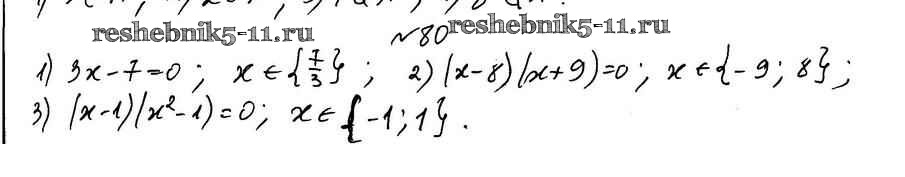 reshebnik5-11.ru №80 reshebnik5-11.ru
1) 3x-7=0; x∈{7/3}; 2) (x-8)(x+9)=0; x∈{-9; 8};
3) (x-1)(x²-1)=0; x∈{-1; 1}.